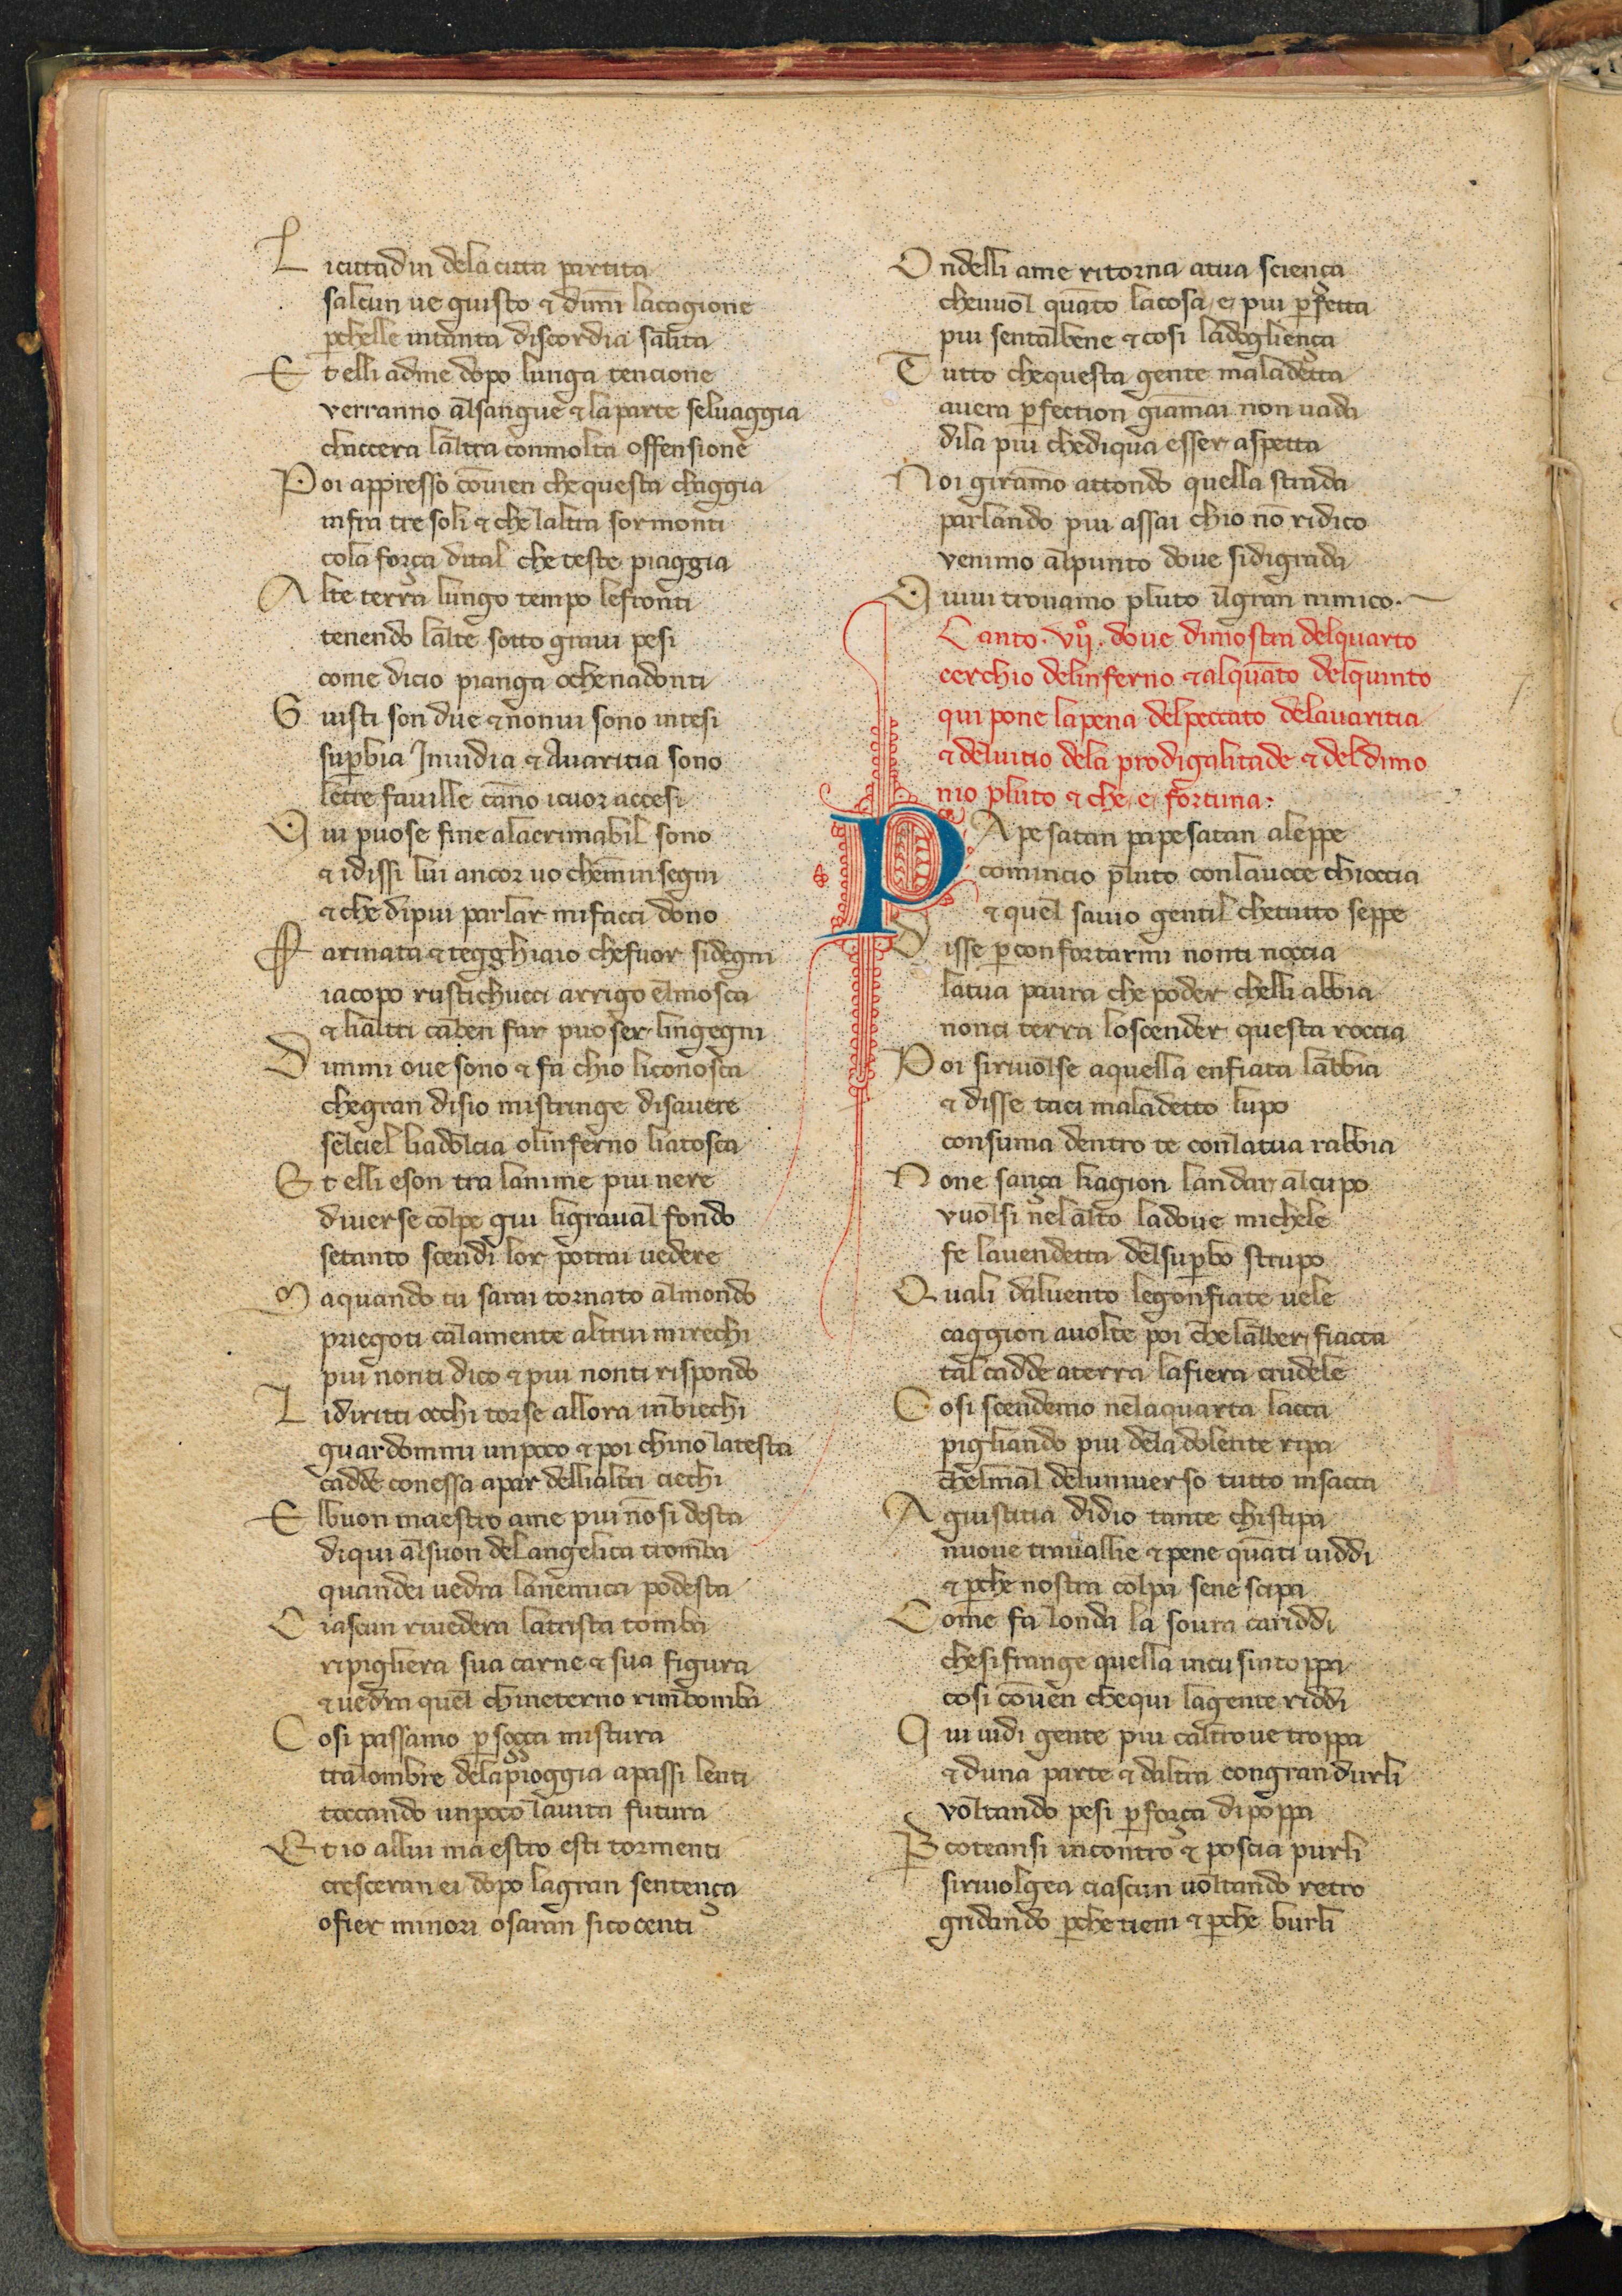 L icittadin dela citta partita
salcun ue giusto & dim̄i lacagione
ꝑchelle intanta discordia salita
E t elli adme dopo lunga tencione
verranno alsangue & laparte seluaggia
chaccera laltra conmolta offensione
P oi appresso cōuien chequesta chaggia
infra tre soli & che laltra sormonti
cola força dital che teste piaggia
A lte terra lungo tempo lefronti
tenendo lalte sotto graui pesi
come dicio pianga ochenadonti
G iusti son due & nonui sono intesi
suꝑbia Inuidia & Auaritia sono
letre fauille cāno icuor accesi
Q ui puose fine alacrimabil sono
& idissi lui ancor uo chem̄insegni
& che dipiu parlar mifacci dono
F arinata & tegghiaio chefuor sidegni
iacopo rustichucci arrigo elmosca
& lialtri caben far puoser lingegni
D immi oue sono & fa chio liconosca
chegran disio mistringe disauere
selciel liadolcia olinferno liatosca
E t elli eson tra lanime piu nere
diuerse colpe giu ligraual fondo
setanto scendi lor potrai uedere
M aquando tu sarai tornato almondo
priegoti calamente altrui mirechi
piu nonti dico & piu nonti rispondo
L idiritti occhi torse allora inbiechi
guardommi unpoco & poi chino latesta
cadde conessa apar dellialtri ciechi
E lbuon maestro ame piu nōsi desta
diqui alsuon delangelica tromba
quandei uedra lanemica podesta
C iascun riuedera latrista tomba
ripigliera sua carne & sua figura
& uedra quel chineterno rimbomba
C osi passamo ꝑ soçça mistura
tralombre delapioggia apassi lenti
toccando unpoco lauita futura
E t io allui maestro esti tormenti
cresceran ei dopo lagran sentença
ofier minori osaran sicocenti
O ndelli ame ritorna atua sciença
cheuuol quāto lacosa e piu ꝑfetta
piu sentalbene & cosi ladogliença
T utto chequesta gente maladetta
auera ꝑfection giāmai non uada
dila piu chediqua esser aspetta
N oi girāmo attondo quella strada
parlando piu assai chio nō ridico
venimo alpunto doue sidigrada
Q uiui trouamo pluto il gran nimico.
Canto. vijº. doue dimostra delquarto
cerchio delinferno & alquāto delquinto
qui pone lapena delpeccato delauaritia
& deluitio dela prodigalitade & deldimo
nio pluto & che e fortuna:
P Ape satan pape satan aleppe
comincio pluto conlauoce chioccia
& quel sauio gentil chetutto seppe
D isse ꝑ confortarmi nonti noccia
latua paura che poder chelli abbia
nonci terra loscender questa roccia
P oi siriuolse aquella enfiata labbia
& disse taci maladetto lupo
consuma dentro te conlatua rabbia
N one sança kagion landar alcupo
vuolsi nelalto ladoue michele
fe lauendetta delsuꝑbo strupo
Q uali daluento legonfiate uele
caggion auolte poi che lalber fiacca
tal cadde aterra lafiera crudele
C osi scendemo nelaquarta lacca
pigliando piu dela dolente ripa
chelmal deluniuerso tutto insacca
A giustitia didio tante chistipa
nuoue trauallie & pene quāti uiddi
& ꝑche nostra colpa sene scipa
C ome fa londa la soura cariddi
chesifrange quella incu sintoppa
cosi cōuen chequi lagente riddi
Q ui uidi gente piu caltroue troppa
& duna parte & daltra congrandurli
voltando pesi ꝑ força dipoppa
P ercoteansi incontro & poscia purli
siriuolgea ciascun uoltando retro
gridando ꝑche tieni & ꝑche burli